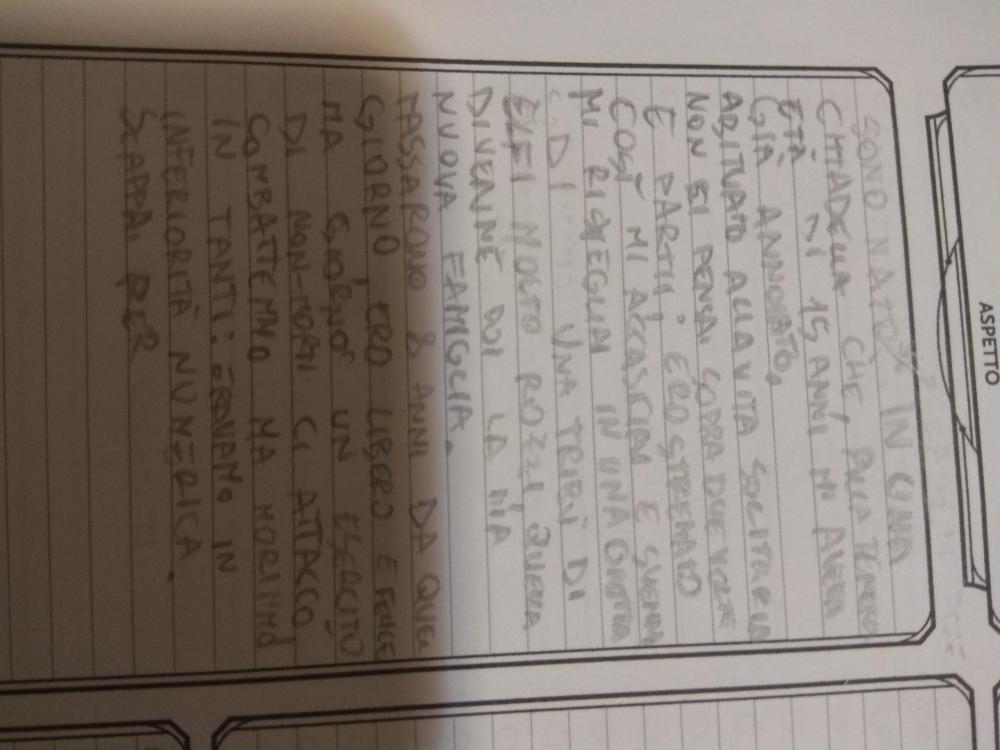 ASPETTO
SONO NATO IN UNA
CITTADELLA CHE, ALLA TENERA
ETÀ DI 15 ANNI MI AVEVA
GIÀ ANNOIATO,
ABITUATO ALLA VITA SOLITARIA
NON CI PENSAI SOPRA DUE VOLTE
E PARTII. ERO STREMATO
COSÌ MI ACCASCIAI E SVENNI
MI RISVEGLIAI IN UNA GROTTA
DI UNA TRIBÙ DI
ELFI MOLTO ROZZI, QUELLA
DIVENNE POI LA MIA
NUOVA FAMIGLIA.
PASSARONO 8 ANNI DA QUEL
GIORNO, ERO LIBERO E FELICE
MA GIORNO UN ESERCITO
DI NON-MORTI CI ATTACCÒ,
COMBATTEMMO MA MORIMMO
IN TANTI: ERAVAMO IN
INFERIORITÀ NUMERICA.
SCAPPAI PER